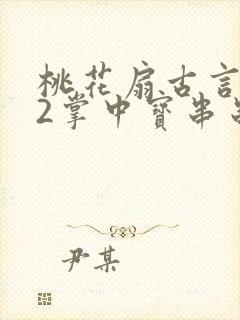 桃花扇古言
2掌中寳串
尹某